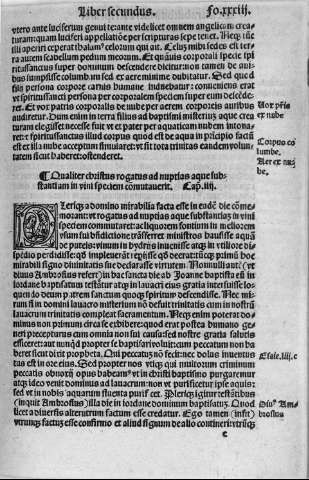 Liber secundus. Fo.xxxiij.
vtero ante luciferum genui te: ante videlicet omnem angelicam crea-
turam: quam luciferi appellatiõe per scripturas sepe tenet.
illi aperiri ceperat: balam celorum qui at. Celus mihi sedes est: ter-
ra autem scabellum pedum meorum. Et quãuis corporali specie spi-
ritussanctus super dominum descendere dicitur: non tamen de aui-
bus sumpsisse columbam sed ex aere minime dubitatur. Sed quod
filij persona corpore carnis humane induebatur: conueniens erat
vt spiritussancti persona per corporalem speciem super eum descēde-
ret. Et vox patris corporalis de nube per aerem corporeis auribus
audiretur. Dum enim in terra filius ad baptismi misterium aque crea-
turam elegisset: necesse fuit vt et pater per aquaticam nubem intona-
ret: et spiritussanctus illud corpus quod est de aqua in
est et illa nube acceptum sinuaret: vt sic tota trinitas eandem volun-
tatem sicut haberet: ostenderet.
Vox p̄ris
ex nube
Corpus co
lumbe.
Aer ex nu
be
¶ Qualiter christus rogatus ad nuptias aque sub-
stantiam in vini speciem cõmutauerit. Cap.iiij.
PLeriq; a domino mirabilia facta esse in eadē die cõme-
morant: vt rogatus ad nuptias aque substantiã in vini
speciem commutaret: aliquorum fontium in meliorem
vsum subditione trãsferret ministros hausisse aquã
de puteis: vinum in hydrijs inuenisse atq; in vtiliore di-
spēdio perdidisse: qd impleuerãt: episse qd deerat: ītucq; primũ hoc
mirabili signo diuinitatis sue declarasse virtutem. Nonnulli aut (vt
diuus Ambrosius refert) in hac sancta die ab Joanne baptista eũ in
Jordane baptisatum testãtur atq; in lauacri eius gratia interfuisse lo-
quendo deum patrem sanctum quoq; spiritum descendisse. Nec mi-
rum si in domini lauacro misterium nõ defuit trinitatis cum in nostrũ
lauacrum trinitatis compleat sacramentum. Necq; enim poterat do-
minus non primum circa se exhibere: quod erat postea humano ge-
neri precepturus cum omnia non sui causa sed nostre gratia salutis
efficeret: aut nunqd propter se baptisari voluit: cum peccatum non ha
beret sicut dicit propheta. Qui peccatũ nõ fecit: nec dolus inuentus
est in ore eius. Sed propter nos vticq; qui multorum criminum
peccatis obnoxij opus habeamus vt in christi baptismo purgaremur
atq; ideo venit dominus ad lauacrum: non vt purificet ipse aquis:
sed vt in nobis aquarum fluenta purificet. Pleriq; igitur testãtibus
(inquit Ambrosius) illa die in Iordane dominum baptisatus. Quod
licet a diuersis alterutrum factum esse credatur. Ego tamen (infit)
vtrunq; factum esse confirmo et aliud signum de alio contineri: vtrũq;
Esaie.liij.c
Diuus Am-
brosius
e